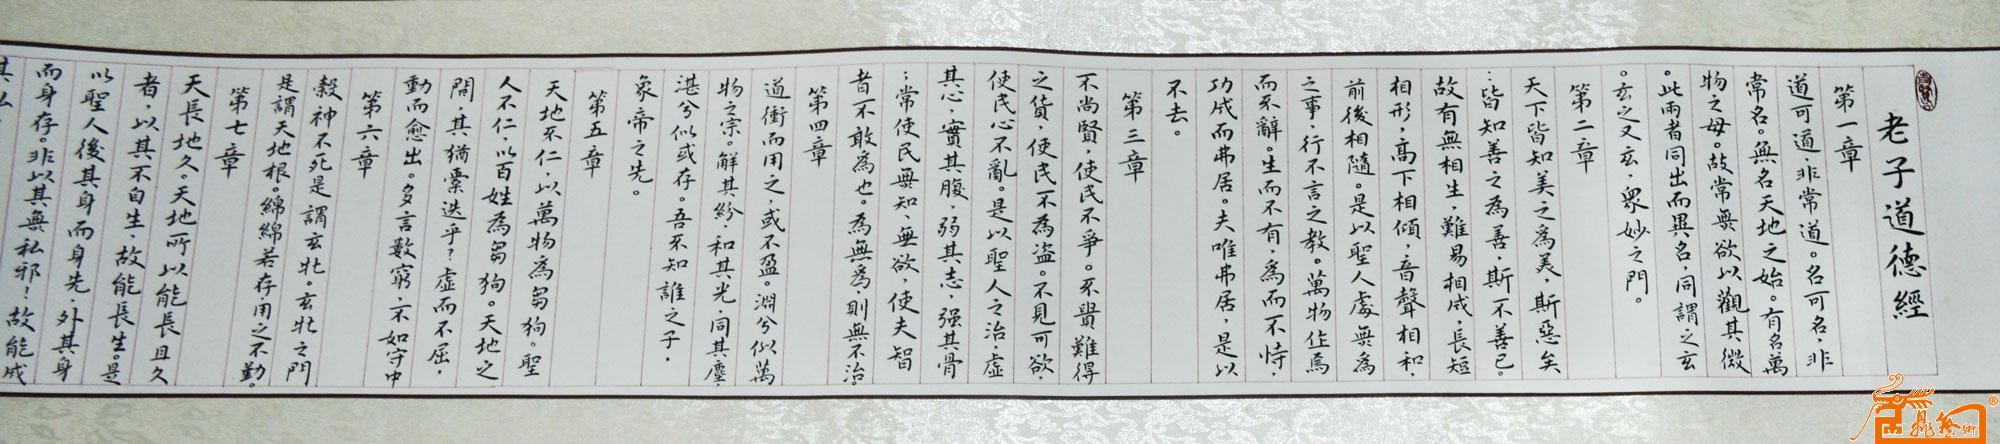 老子道德經
第一章
道可道，非常道。名可名，非
常名。無名天地之始。有名萬
物之母。故常無欲以觀其微
。此兩者同出而異名，同謂之玄
。玄之又玄，眾妙之門。
第二章
天下皆知美之為美，斯惡矣
；皆知善之為善，斯不善已。
故有無相生，難易相成，長短
相形，高下相傾，音聲相和，
前後相隨。是以聖人處無為
之事，行不言之教。萬物作焉
而不辭。生而不有，為而不恃，
功成而弗居。夫唯弗居，是以
不去。
第三章
不尚賢，使民不爭。不貴難得
之貨，使民不為盗。不見可欲，
使民心不亂。是以聖人之治，虛
其心，實其腹，弱其志，强其骨
；常使民無知、無欲，使夫智
者不敢為也。為無為，則無不治
第四章
道衝而用之，或不盈。淵兮似萬
物之宗。解其紛，和其光，同其塵，
湛兮似或存。吾不知誰之子，
象帝之先。
第五章
天地不仁，以萬物為芻狗。聖
人不仁，以百姓為芻狗。天地之
間，其猶橐迭乎？虛而不屈，
動而愈出。多言數窮，不如守中
第六章
穀神不死是謂玄牝。玄牝之門
是謂天地根。綿綿若存，用之不勤。
第七章
天長地久。天地所以能長且久
者，以其不自生，故能長生。是
以聖人後其身而身先，外其身
而身存。非以其無私邪！故能成
其私